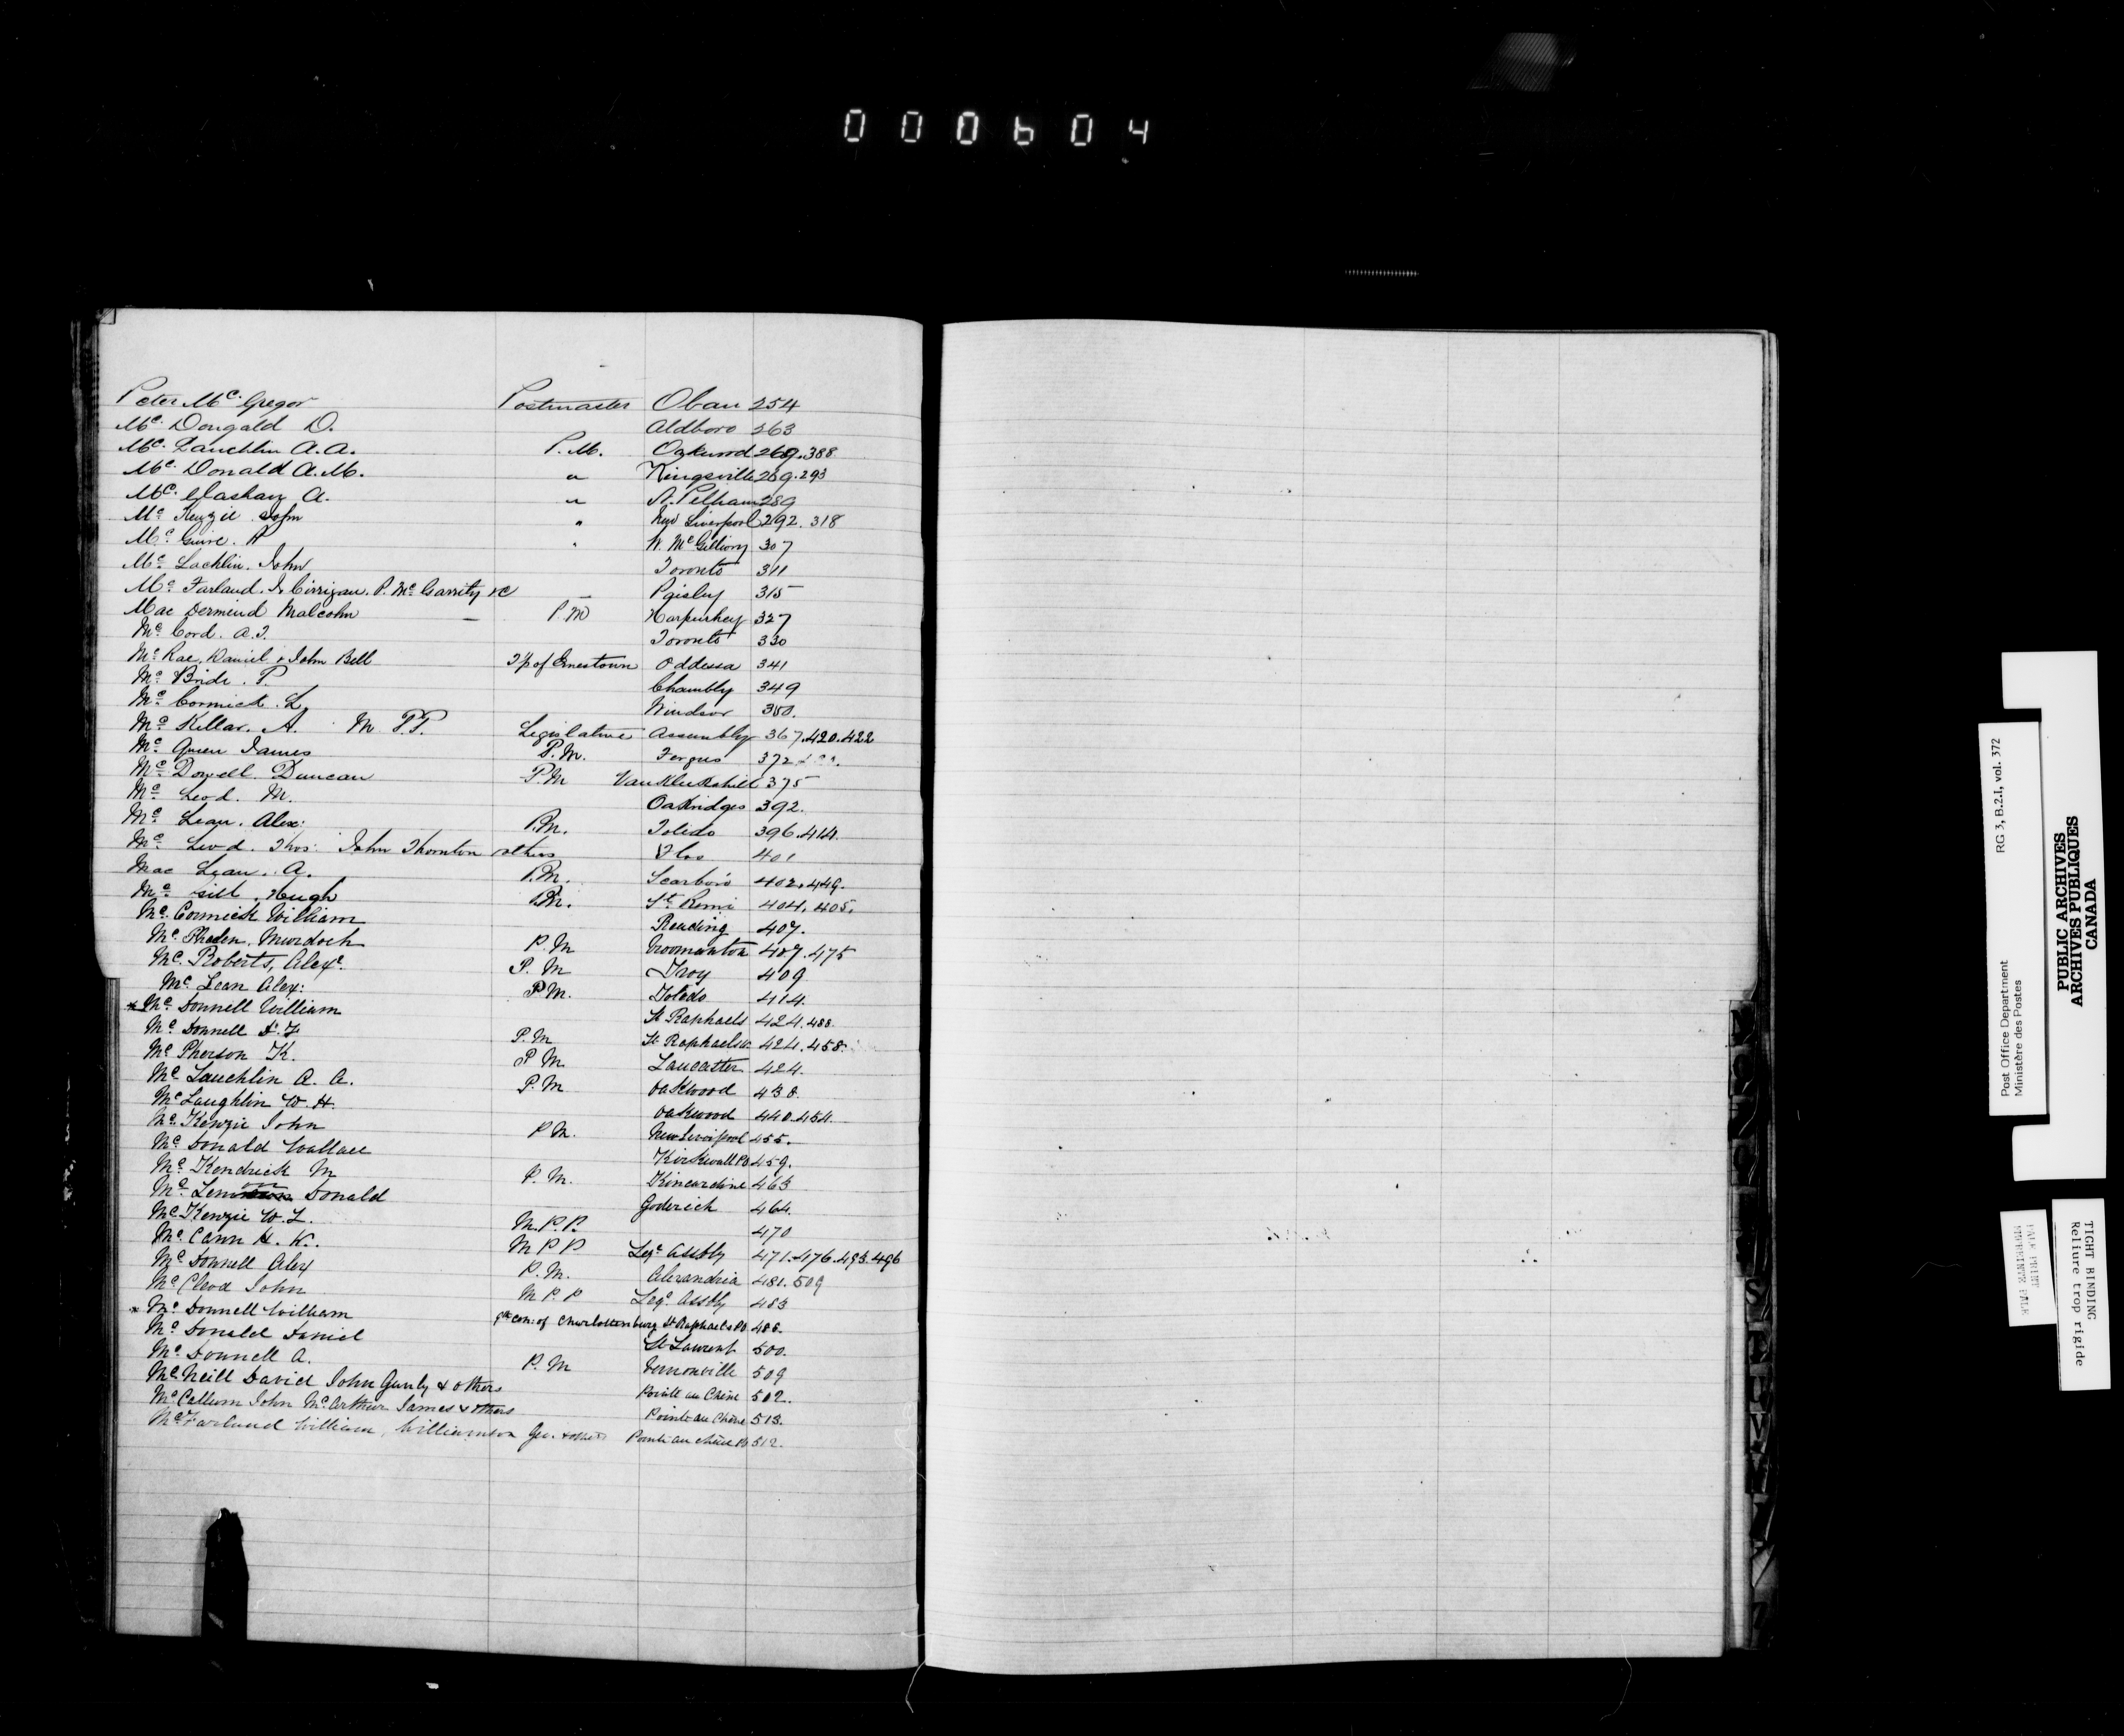 000604
Peter Mc. Gregor Postmaster Oban 254
Mc. Dougald D. Aldboro 263
Mc. Lauchlin A. A. P. M. Oakwood 269.388
Mc. Donald A. M. " Kingsville 269.293
Mc. Glashan A. " N. Pelham 289
Mc Kenzie John " New Liverpool 292. 318
Mc Guire. P " W. McGillivry 307
Mc Lachlin. John Toronto 311
Mc Farland. J. Corrigan. P. Mc Garrity &c Paisley 315
Mac Dermind Malcolm P.M Harpurhey 327
Mc Cord. A. T. Toronto 330
Mc Rae, Daniel & John Bell Tp of Ernestown Oddessa 341
Mc Bride. P. Chambly 349
Mc Cormick. L. Windsor 350.
Mc Kellar. A. M. PP. Legislative Assembly 367.420.422
Mc Queen James P.M. Fergus 372
Mc Dowell. Duncan P.M Vankleekhill 375
Mc Leod. M. Oakridges 392.
Mc Lean. Alex: P.M. Toledo 396.414.
Mc Leod. Thos: John Thornton others Flos 401
Mac Lean. A. P.M. Scarboro 402.449.
Mc Gill. Hugh P.M. St Remi 404.405.
Mc. Cormick William Reading 407.
Mc. Phaden. Murdoch P. M Vroomanton 407.475
Mc. Roberts, Alexr. P. M Troy 409
Mc Lean Alex: P M. Toledo 414.
* Mc. Donnell William St Raphaels 424.488.
Mc. Donnell D. F P. M St Raphaels W. 424.458.
Mc Pherson K. P M. Lancaster 424.
Mc Lauchlin A. A. P. M Oakwood 438.
Mc Laughlin W. H. Oakwood 440.454.
Mc. Kenzie John P M. New Liverpool 455.
Mc Donald Wallace Kirkwall PO 459.
Mc. Kendrick M P. M. Kincardine 463
Mc. Lennon Donald Goderich 464.
Mc Kenzie W. L. M. P. P. 470
Mc. Cann H. K. M P P Lege Assbly 471.476.493.496
Mc Donnell Alex P. M. Alexandria 481.509
Mc Cleod John M P. P Lege Assbly 483
* Mc Donnell William 9th con: of Charlottenburg St Raphaels PO 488.
Mc Donald Daniel St Laurent 500.
Mc Donnell A. P. M Vernonville 509
Mc Neill David John Gurly & others Pointe au Chêne 502.
Mc Callum John Mc Arthur James & others Pointe au Chêne 513.
Mc Farland William, Williamson Geo. & others Pointe au Chêne PO 512.
Post Office Department RG 3, B.2.I, vol. 372
Ministère des Postes
PUBLIC ARCHIVES
ARCHIVES PUBLIQUES
CANADA
TIGHT BINDING
Reliure trop rigide